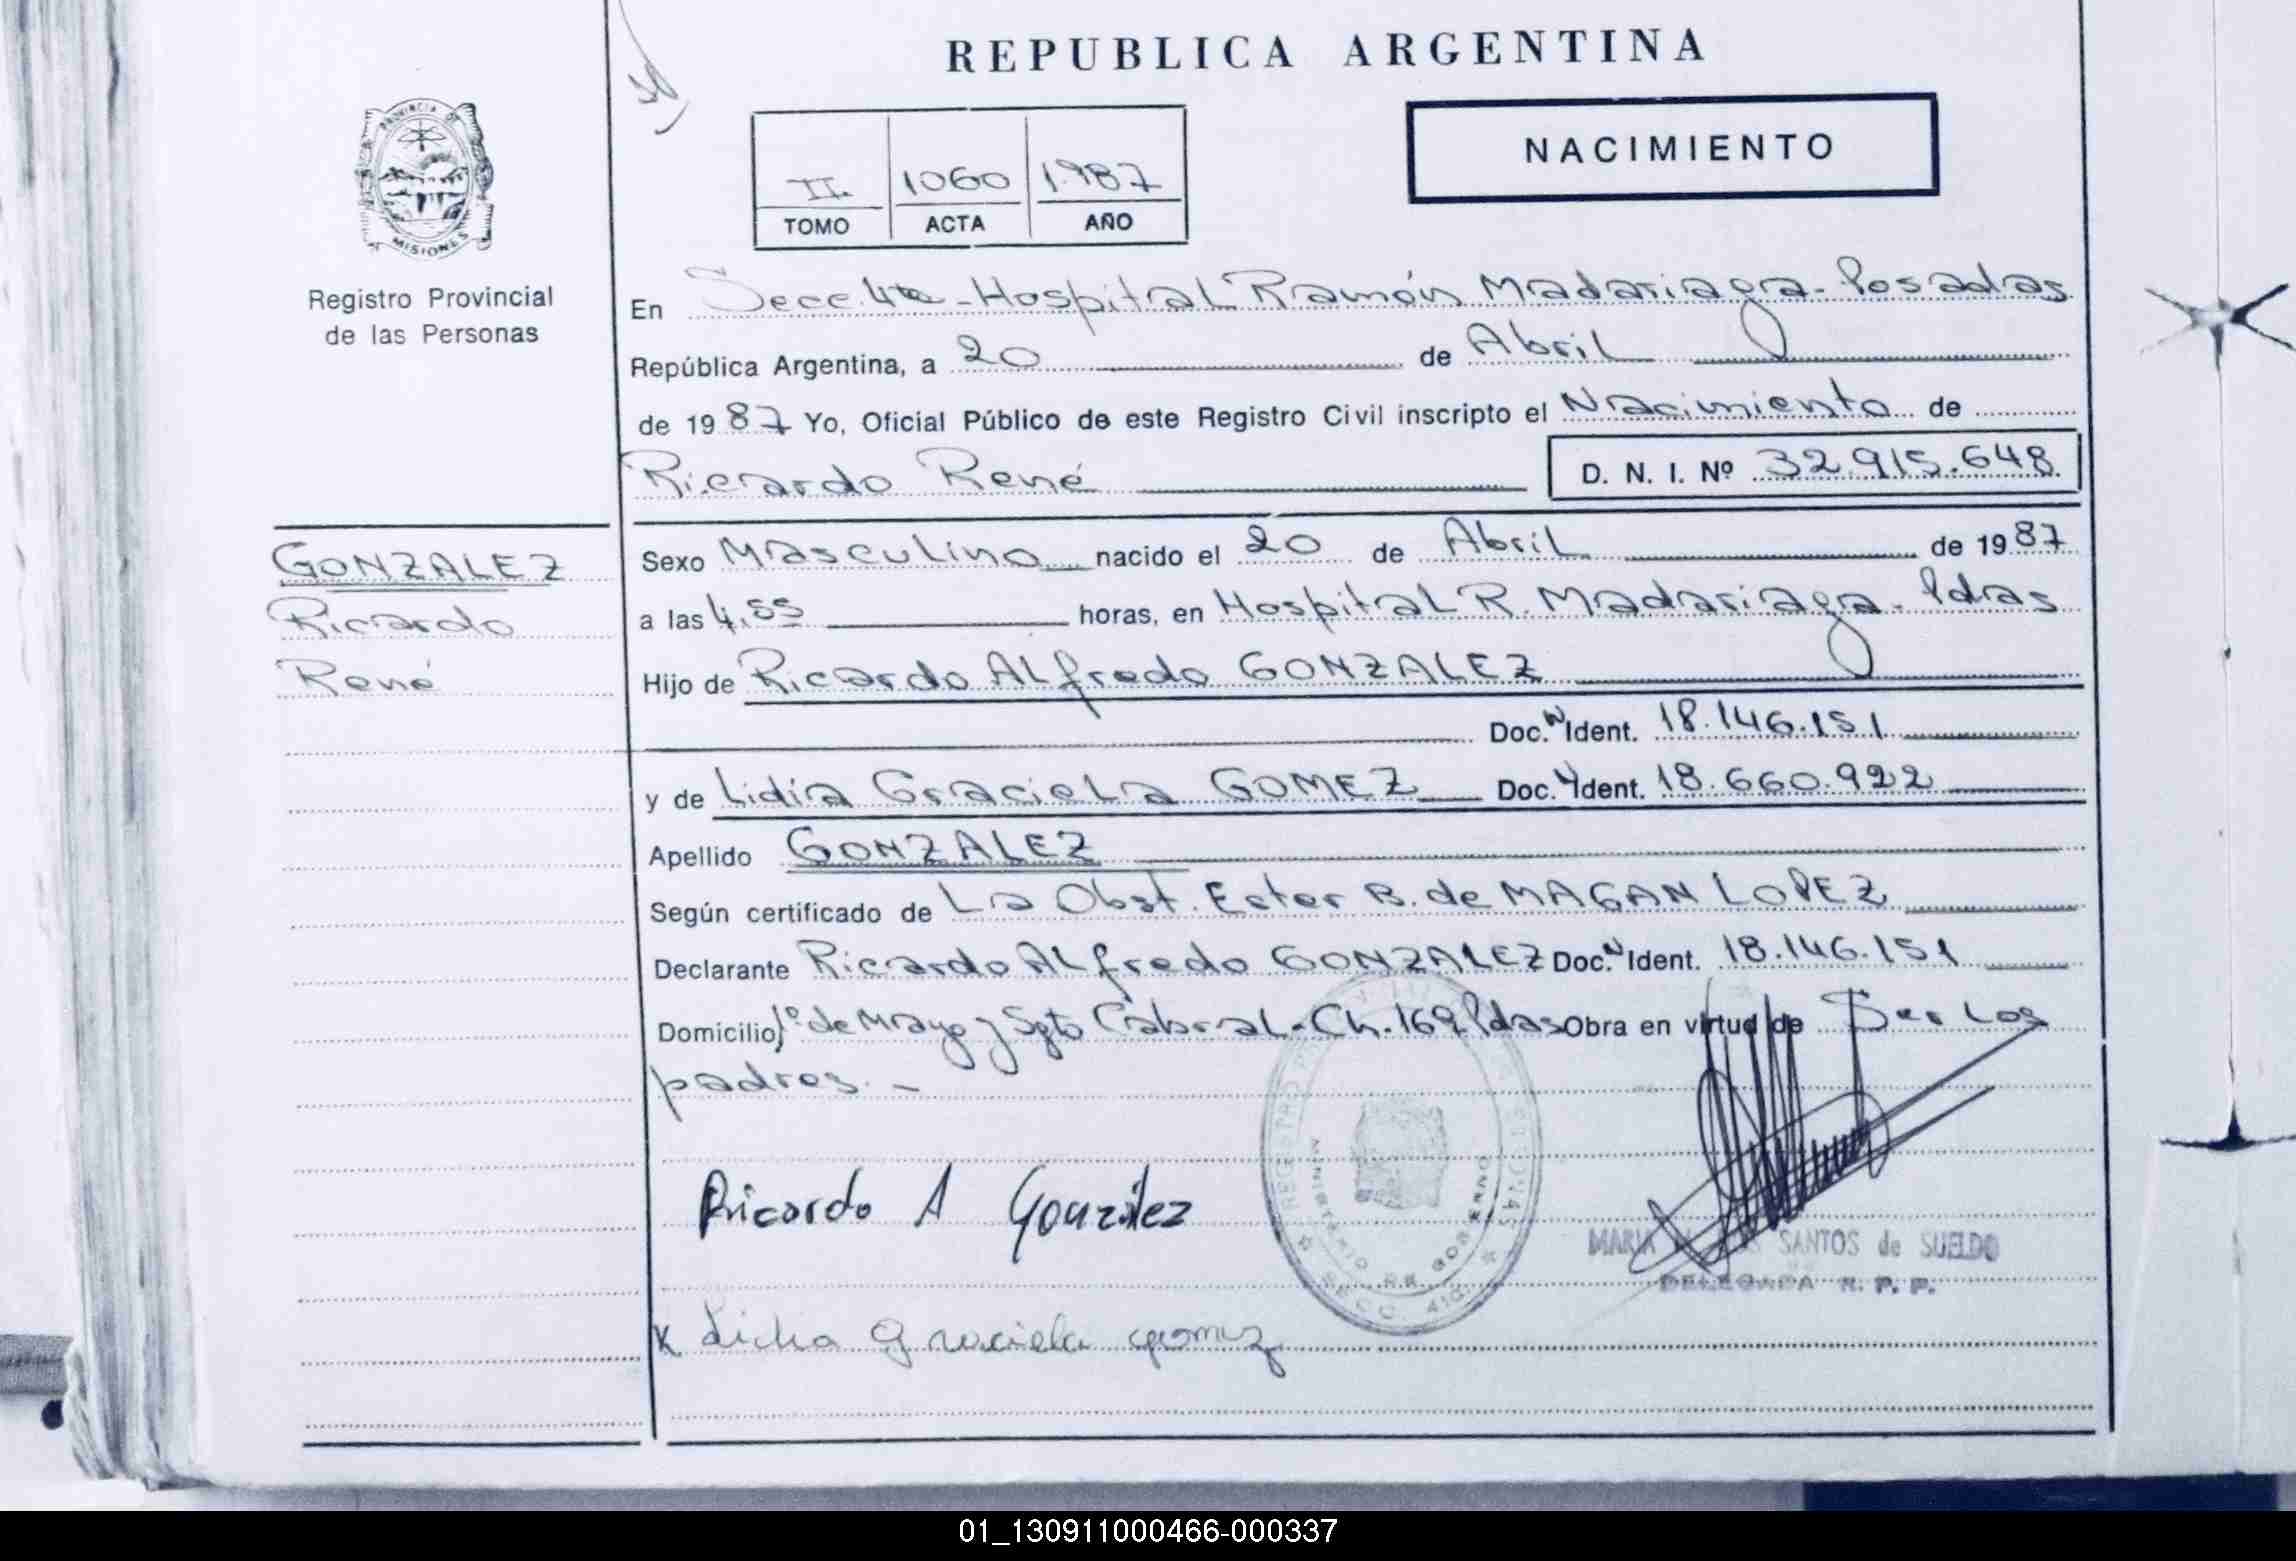 REPUBLICA ARGENTINA
PROVINCIA DE
MISIONES
Registro Provincial
de las Personas
II. 1060 1987
TOMO ACTA AÑO
NACIMIENTO
En Secc. 4ta - Hospital Ramón Madariaga - Posadas
República Argentina, a 20 de Abril
de 1987 Yo, Oficial Público de este Registro Civil inscripto el Nacimiento de
Ricardo René D. N. I. Nº 32.915.648
GONZALEZ
Ricardo
René
Sexo Masculino nacido el 20 de Abril de 1987
a las 4,55 horas, en Hospital R. Madariaga - Pdas
Hijo de Ricardo ALfredo GONZALEZ
Doc. N Ident. 18.146.151
y de Lidia GracieLa GOMEZ Doc. Ident. 18.660.922
Apellido GONZALEZ
Según certificado de La Obst. Ester B. de MAGAN LOPEZ
Declarante Ricardo ALfredo GONZALEZ Doc. N Ident. 18.146.151
Domicilio 1º de Mayo y Sgto Cabral - Ch. 169 Pdas Obra en virtud de Ser Los
padres. -
Ricardo A González
MINISTERIO DE GOBIERNO
SECC. 4ta.
MARIA SANTOS de SUELDO
DELEGADA R. P. P.
x Lidia Graciela gomez
01_130911000466-000337